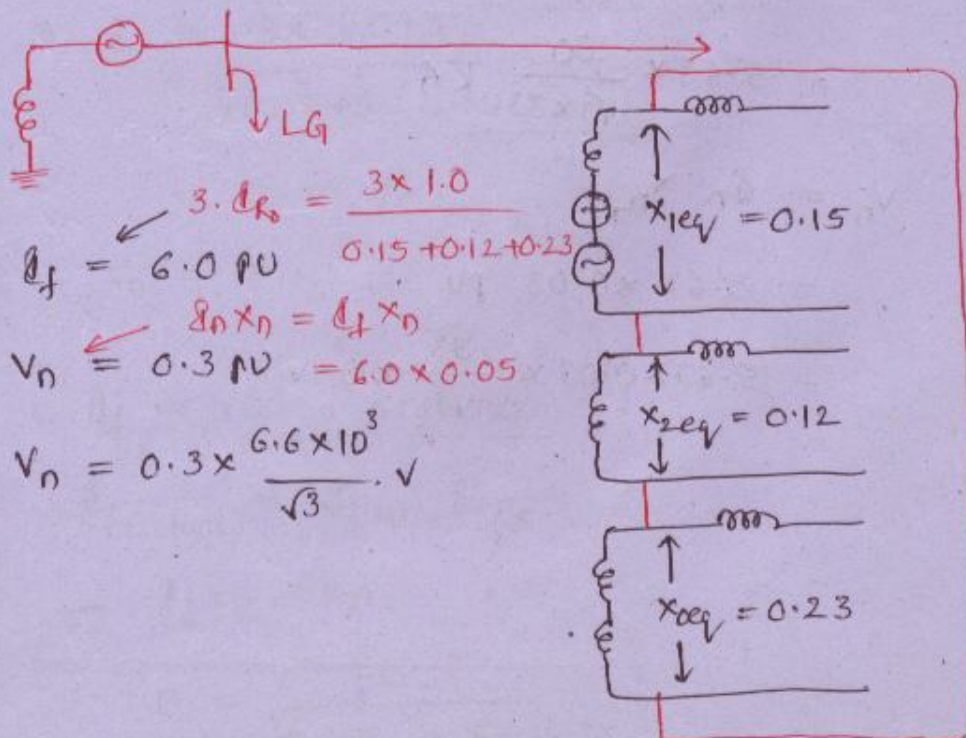 LG
3. I_R0 = 3 x 1.0 / 0.15 + 0.12 + 0.23
I_f = 6.0 PU
I_n x_n = I_f x_n
V_n = 0.3 PU = 6.0 x 0.05
V_n = 0.3 x 6.6 x 10^3 / √3 . V
x_1eq = 0.15
x_2eq = 0.12
x_0eq = 0.23